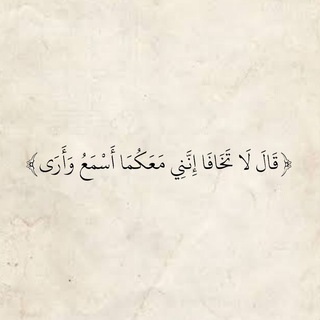 ﴿ قَالَ لَا تَخَافَا إِنَّنِي مَعَكُمَا أَسْمَعُ وَأَرَى ﴾